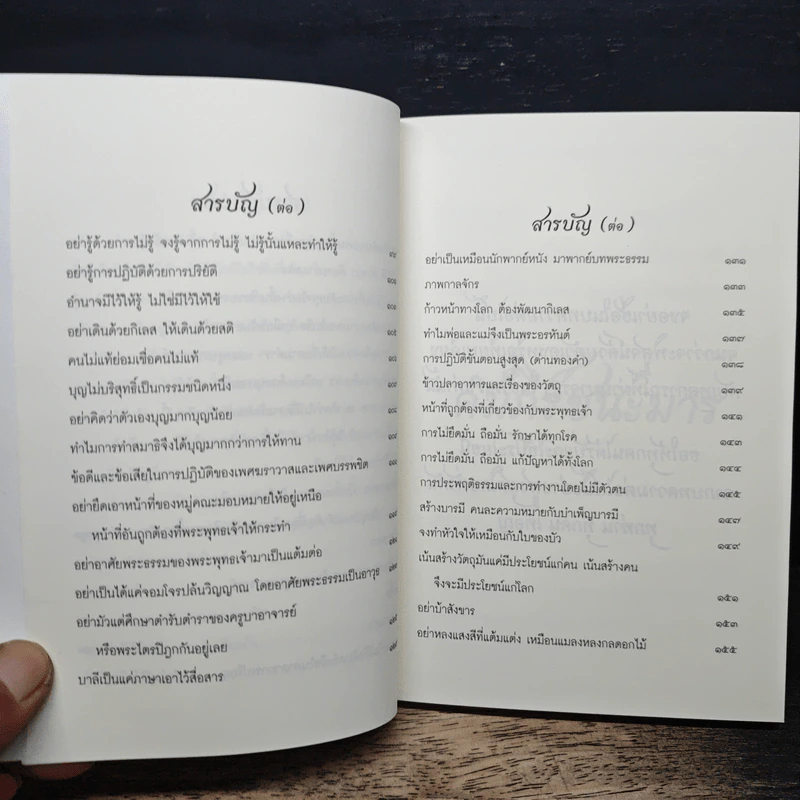 สารบัญ (ต่อ)
อย่ารู้ด้วยการไม่รู้ จงรู้จากการไม่รู้ ไม่รู้นั้นแหละทำให้รู้
อย่ารู้การปฏิบัติด้วยการปริยัติ
อำนาจมีไว้ให้รู้ ไม่ใช่มีไว้ให้ใช้
อย่าเดินด้วยกิเลส ให้เดินด้วยสติ
คนไม่แท้ย่อมเชื่อคนไม่แท้
บุญไม่บริสุทธิ์เป็นกรรมชนิดหนึ่ง
อย่าคิดว่าตัวเองบุญมากบุญน้อย
ทำไมการทำสมาธิจึงได้บุญมากกว่าการให้ทาน
ข้อดีและข้อเสียในการปฏิบัติของเพศฆราวาสและเพศบรรพชิต
อย่ายึดเอาหน้าที่ของหมู่คณะมอบหมายให้อยู่เหนือ
หน้าที่อันถูกต้องที่พระพุทธเจ้าให้กระทำ
อย่าอาศัยพระธรรมของพระพุทธเจ้ามาเป็นแต้มต่อ
อย่าเป็นได้แค่จอมโจรปล้นวิญญาณ โดยอาศัยพระธรรมเป็นอาวุธ
อย่ามัวแต่ศึกษาตำรับตำราของครูบาอาจารย์
หรือพระไตรปิฎกกันอยู่เลย
บาลีเป็นแค่ภาษาเอาไว้สื่อสาร
สารบัญ (ต่อ)
อย่าเป็นเหมือนนักพากย์หนัง มาพากย์บทพระธรรม ๑๓๑
ภาพกาลจักร ๑๓๓
ก้าวหน้าทางโลก ต้องพัฒนากิเลส ๑๓๕
ทำไมพ่อและแม่จึงเป็นพระอรหันต์ ๑๓๗
การปฏิบัติขั้นตอนสูงสุด (ด่านทองคำ) ๑๓๘
ข้าวปลาอาหารและเรื่องของวัตถุ ๑๓๙
หน้าที่ถูกต้องที่เกี่ยวข้องกับพระพุทธเจ้า ๑๔๑
การไม่ยึดมั่น ถือมั่น รักษาได้ทุกโรค ๑๔๓
การไม่ยึดมั่น ถือมั่น แก้ปัญหาได้ทั้งโลก ๑๔๔
การประพฤติธรรมและการทำงานโดยไม่มีตัวตน ๑๔๕
สร้างบารมี คนละความหมายกับบำเพ็ญบารมี ๑๔๗
จงทำหัวใจให้เหมือนกับใบของบัว ๑๔๙
เน้นสร้างวัตถุมันแค่มีประโยชน์แก่คน เน้นสร้างคน
จึงจะมีประโยชน์แก่โลก ๑๕๑
อย่าบ้าสังขาร ๑๕๓
อย่าหลงแสงสีที่แต้มแต่ง เหมือนแมลงหลงกลดอกไม้ ๑๕๕